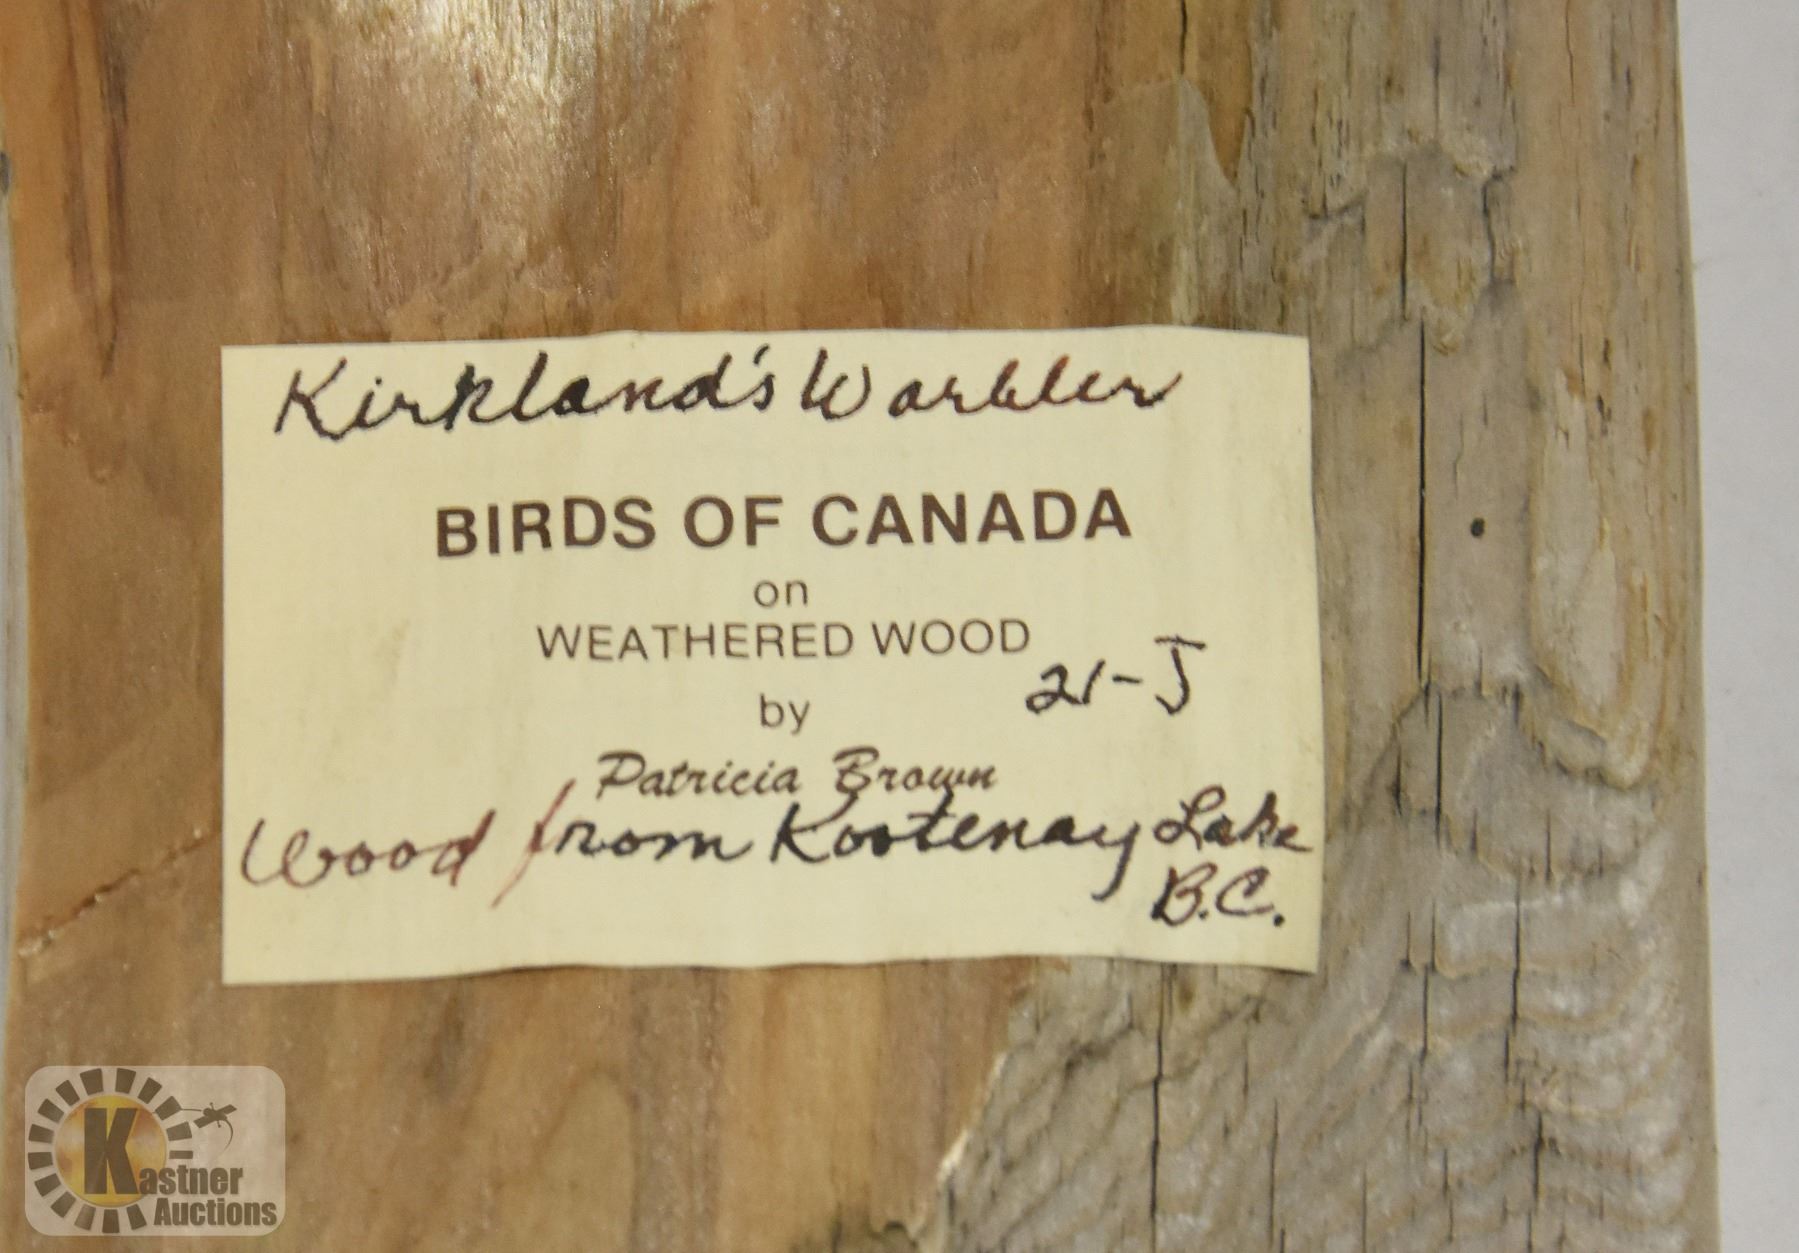 Kirkland's Warbler
BIRDS OF CANADA
on
WEATHERED WOOD
21-J
by
Patricia Brown
Wood from Kootenay Lake
B.C.
Kastner
Auctions